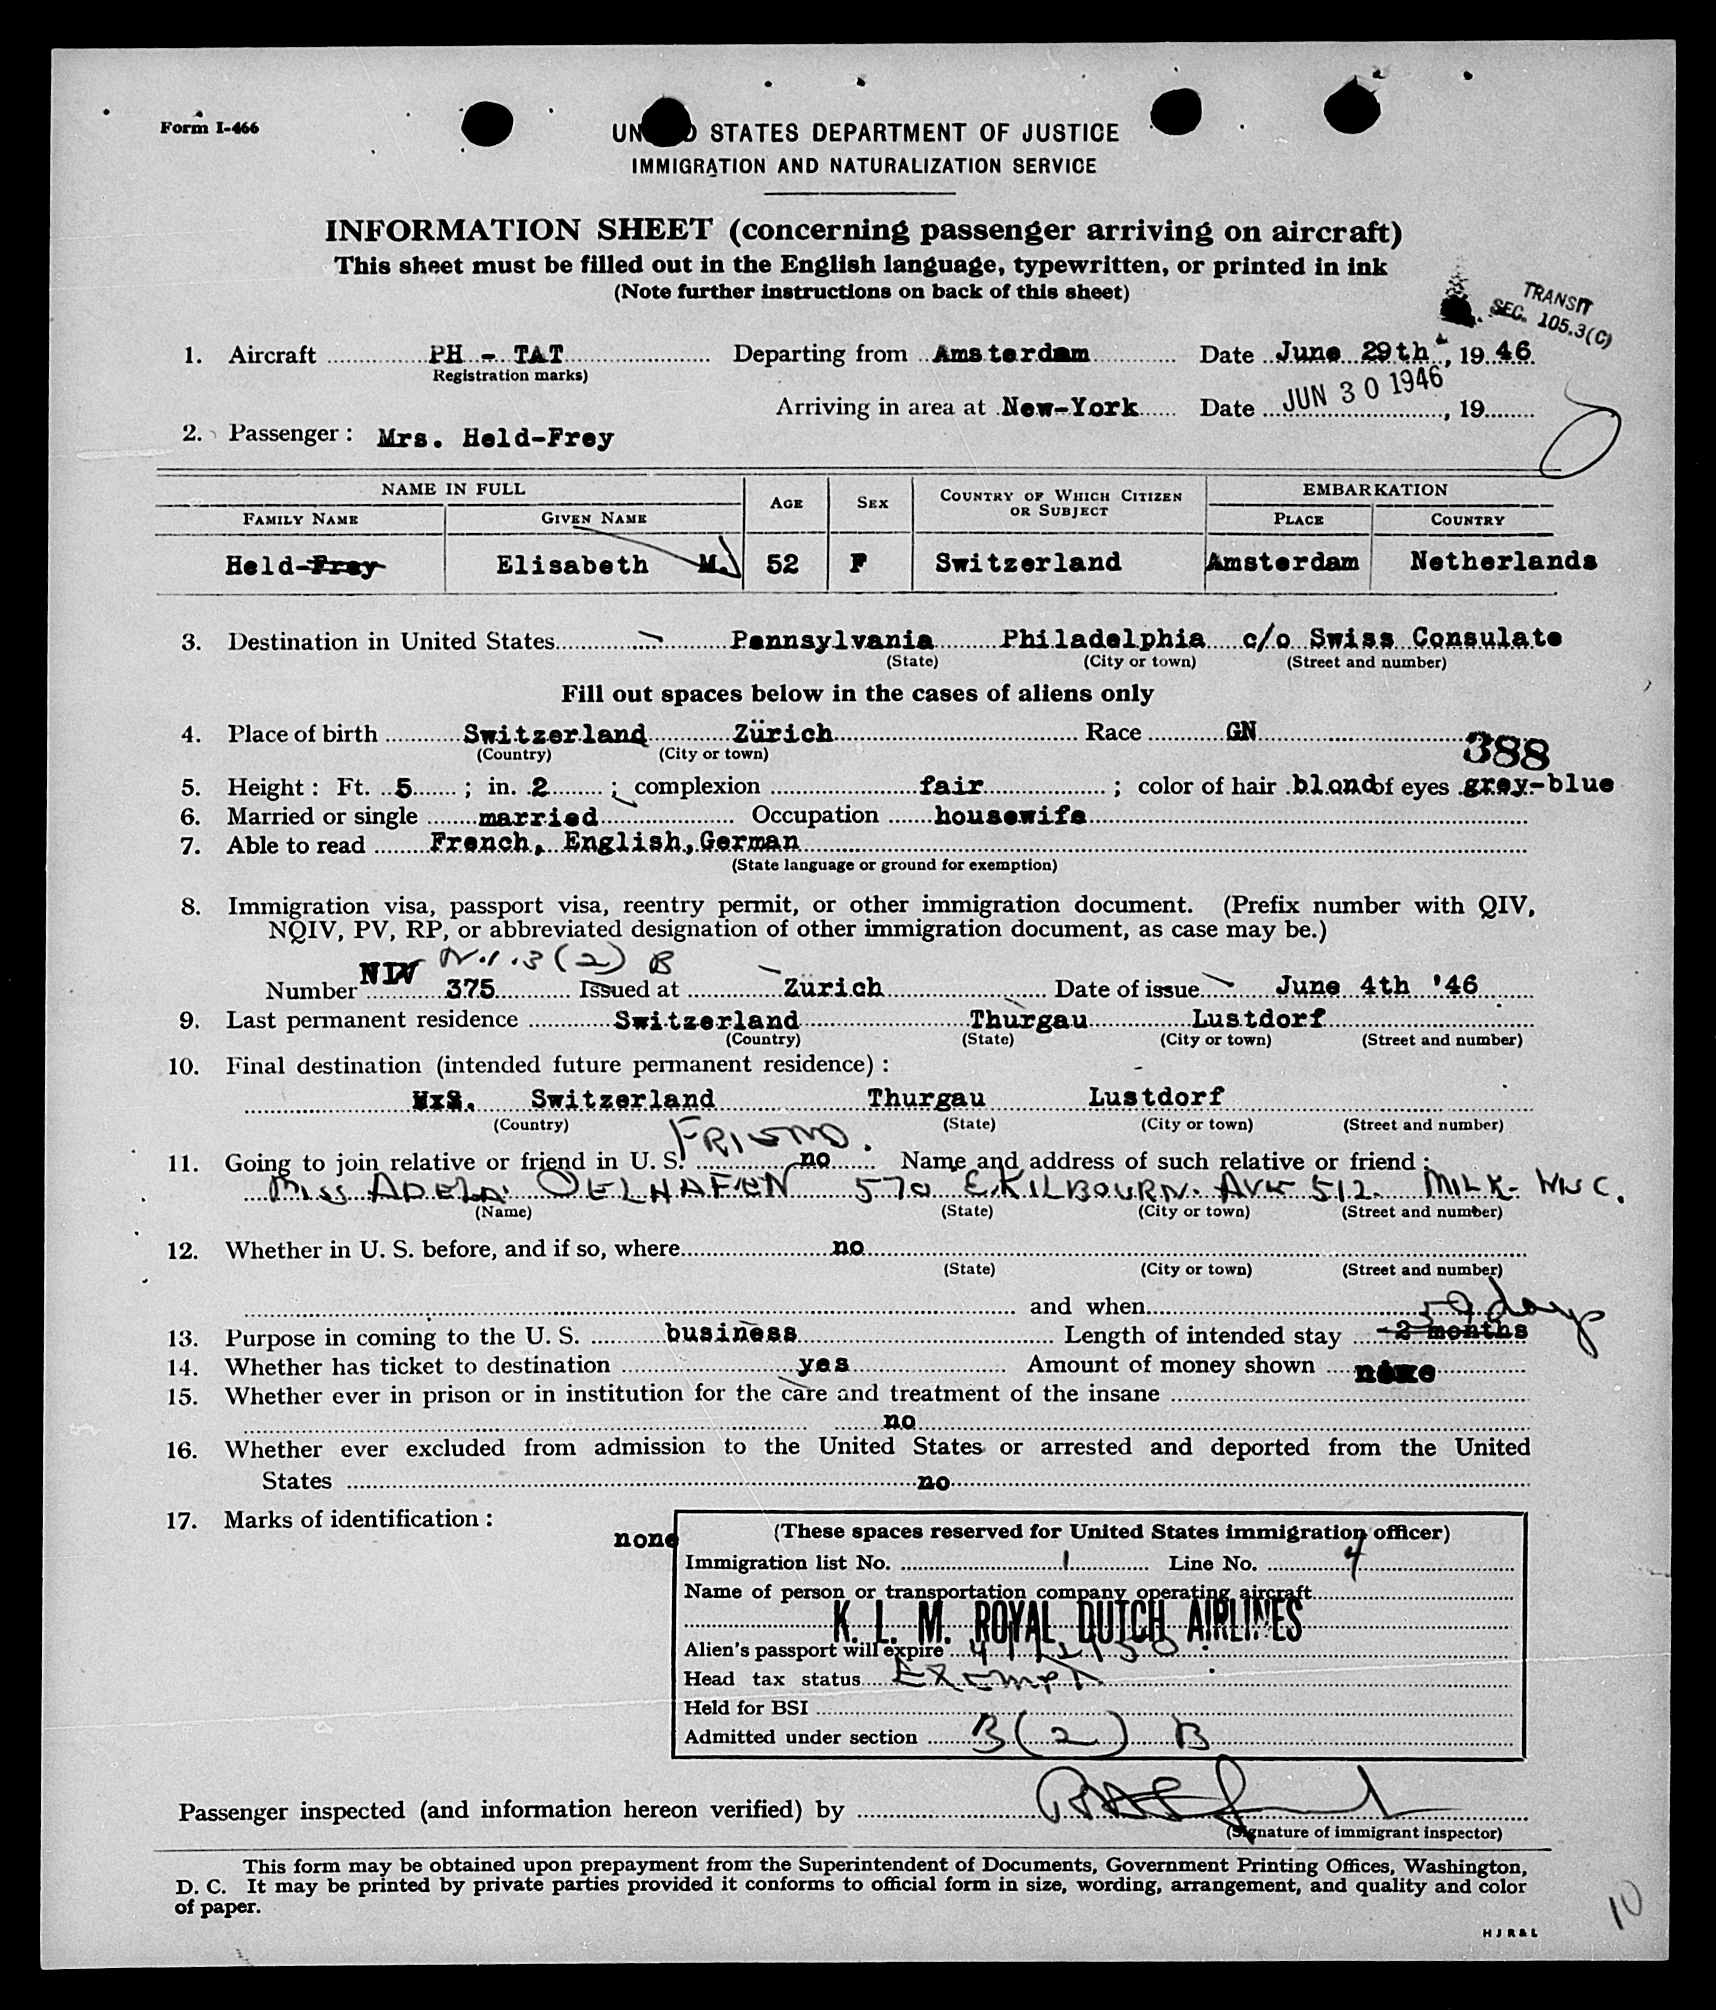 Form I-466
UN D STATES DEPARTMENT OF JUSTICE
IMMIGRATION AND NATURALIZATION SERVICE
INFORMATION SHEET (concerning passenger arriving on aircraft)
This sheet must be filled out in the English language, typewritten, or printed in ink
(Note further instructions on back of this sheet)
TRANSIT
SEC. 105.3(C)
1. Aircraft PH - TAT Departing from Amsterdam Date June 29th, 1946
Registration marks)
Arriving in area at New-York Date JUN 30 1946, 19
2. Passenger: Mrs. Held-Frey
NAME IN FULL AGE SEX COUNTRY OF WHICH CITIZEN OR SUBJECT EMBARKATION
FAMILY NAME GIVEN NAME PLACE COUNTRY
Held-Frey Elisabeth M. 52 F Switzerland Amsterdam Netherlands
3. Destination in United States Pennsylvania Philadelphia c/o Swiss Consulate
(State) (City or town) (Street and number)
Fill out spaces below in the cases of aliens only
4. Place of birth Switzerland Zürich Race GN
(Country) (City or town)
388
5. Height: Ft. 5; in. 2; complexion fair; color of hair blond of eyes grey-blue
6. Married or single married Occupation housewife
7. Able to read French, English, German
(State language or ground for exemption)
8. Immigration visa, passport visa, reentry permit, or other immigration document. (Prefix number with QIV,
NQIV, PV, RP, or abbreviated designation of other immigration document, as case may be.)
NIV 3 (2) B
Number 375 Issued at Zürich Date of issue June 4th '46
9. Last permanent residence Switzerland Thurgau Lustdorf
(Country) (State) (City or town) (Street and number)
10. Final destination (intended future permanent residence):
Switzerland Thurgau Lustdorf
(Country) (State) (City or town) (Street and number)
FRIEND.
11. Going to join relative or friend in U. S. no Name and address of such relative or friend:
MISS ADELA OELHAFEN 570 E. KILBOURN. AVE 512. MILK- WISC.
(Name) (State) (City or town) (Street and number)
12. Whether in U. S. before, and if so, where no
(State) (City or town) (Street and number)
and when
59 days
13. Purpose in coming to the U. S. business Length of intended stay -2 months
14. Whether has ticket to destination yes Amount of money shown
15. Whether ever in prison or in institution for the care and treatment of the insane
no
16. Whether ever excluded from admission to the United States or arrested and deported from the United
States no
17. Marks of identification:
none
(These spaces reserved for United States immigration officer)
Immigration list No. 1 Line No. 4
Name of person or transportation company operating aircraft
K. L. M. ROYAL DUTCH AIRLINES
Alien's passport will expire 4/12/50
Head tax status Exempt
Held for BSI
Admitted under section 3(2) B
Passenger inspected (and information hereon verified) by
(Signature of immigrant inspector)
This form may be obtained upon prepayment from the Superintendent of Documents, Government Printing Offices, Washington,
D. C. It may be printed by private parties provided it conforms to official form in size, wording, arrangement, and quality and color
of paper.
10
H J R & L